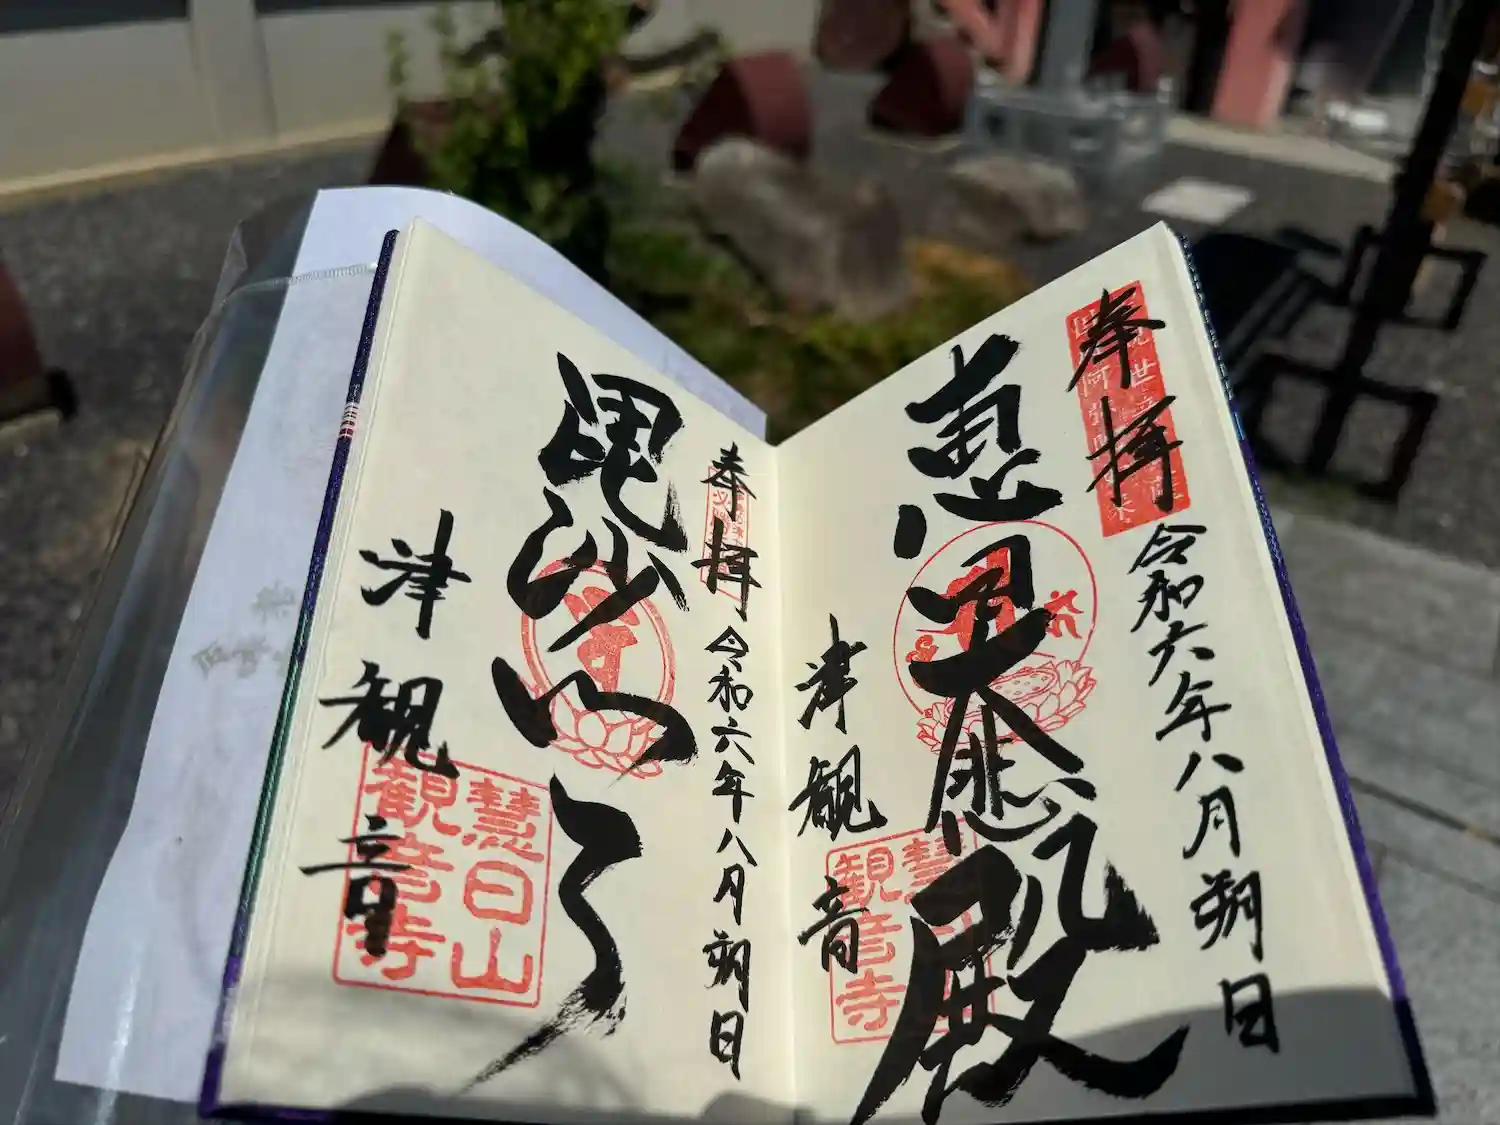 奉拝
令和六年八月朔日
大悲殿
津観音
慧日山
観音寺
奉拝
令和六年八月朔日
毘沙門天
津観音
慧日山
観音寺